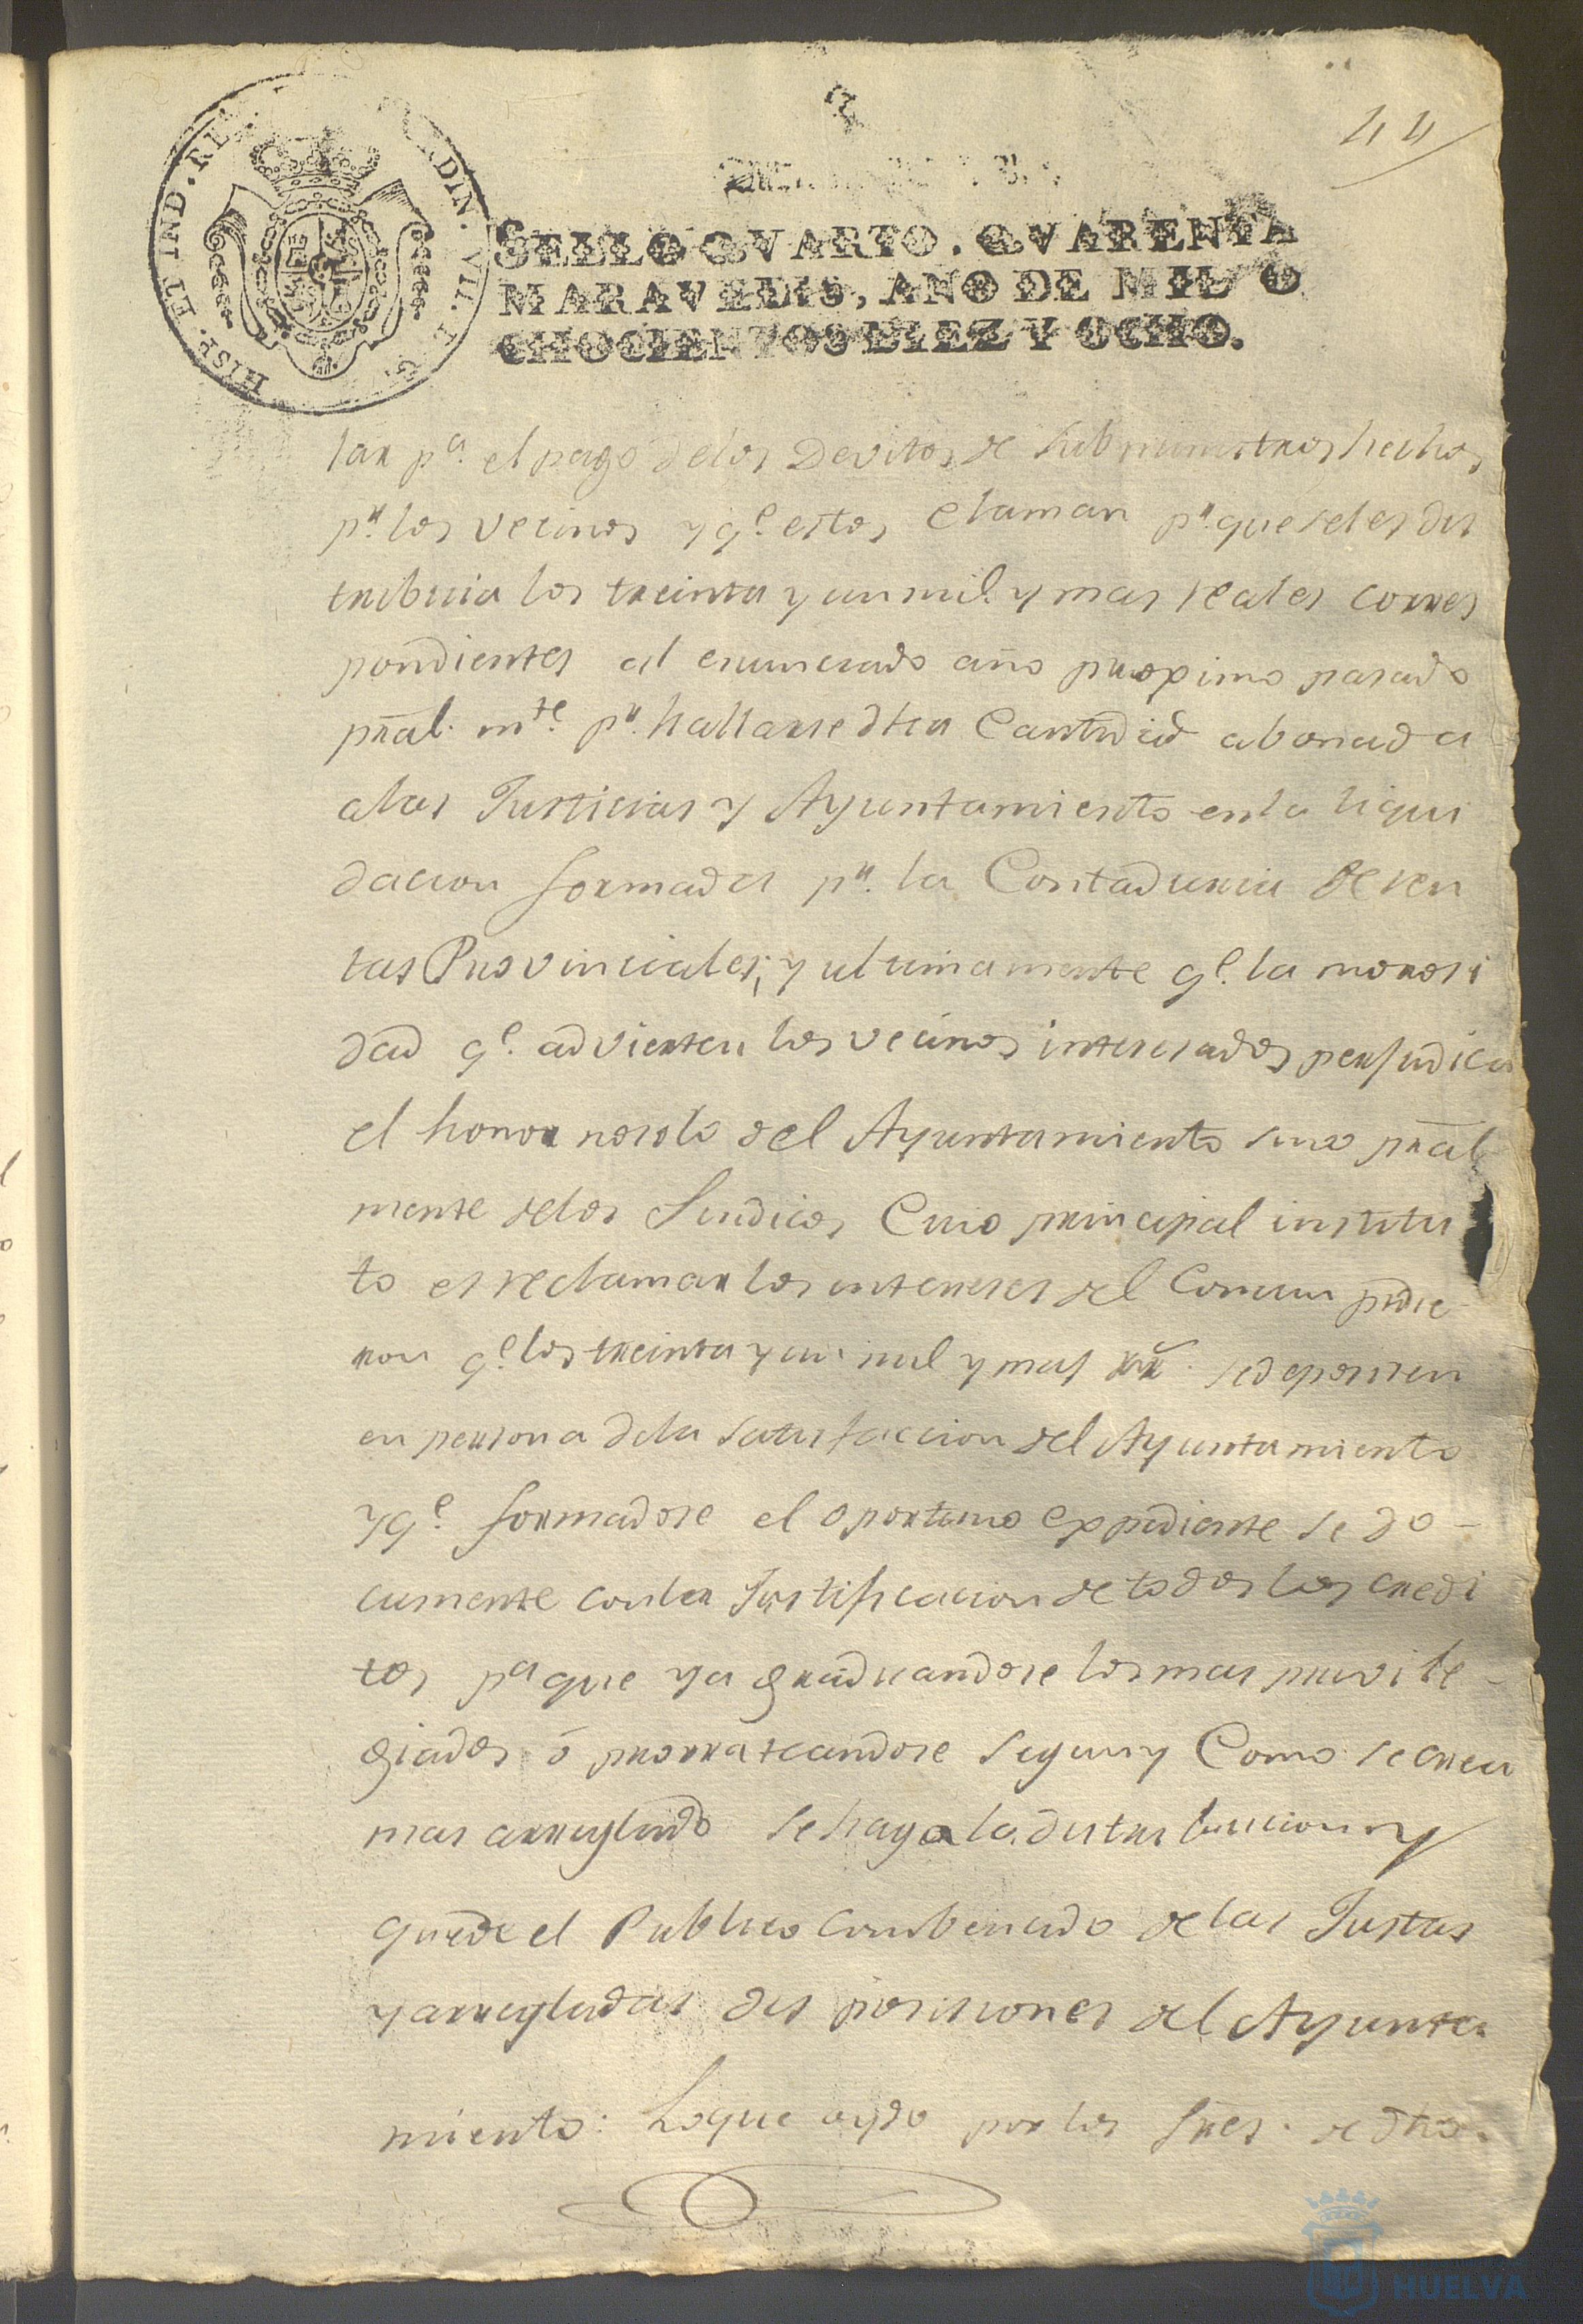 44
HISP. ET IND. REX DIN. VII. D. G.
SELLO QVARTO. QVARENTA
MARAVEDIS, AÑO DE MIL O
CHOCIENTOS DIEZ Y OCHO.
tar p.ª el pago delos Devitos de subministros hechos
p.r los vecinos y q.e estos claman p.r que seles dis
tribuia los treinta y un mil y mas reales corres
pondientes al enunciado año proximo pasado
pral. m.te p.r hallarse dha Cantidad abonada
alas Justicias y Ayuntamiento enla liqui
dacion formada p.r la Contaduria de ren
tas Provinciales; y ultimamente q.e la morosi
dad q.e advierten los vecinos interesados perjudica
el honor nosolo del Ayuntamiento sino pral
mente delos Sindicos Cuio principal institu
to es reclamar los intereses del Comun pidie
ron q.e los treinta y un mil y mas rr.s sedepositen
en persona dela satisfaccion del Ayuntamiento
y q.e formadose el oportuno expediente se do-
cumente conla Justificacion de todos los credi
tos p.a que ya graduandose los mas privile-
giados ó prorrateandose segun y Como se crea
mas arreglado se haga la distribucion y
quede el Publico combencido de las Justas
y arregladas disposiciones del Ayunta
miento: Loque oydo por los Sres. de dho.
HUELVA